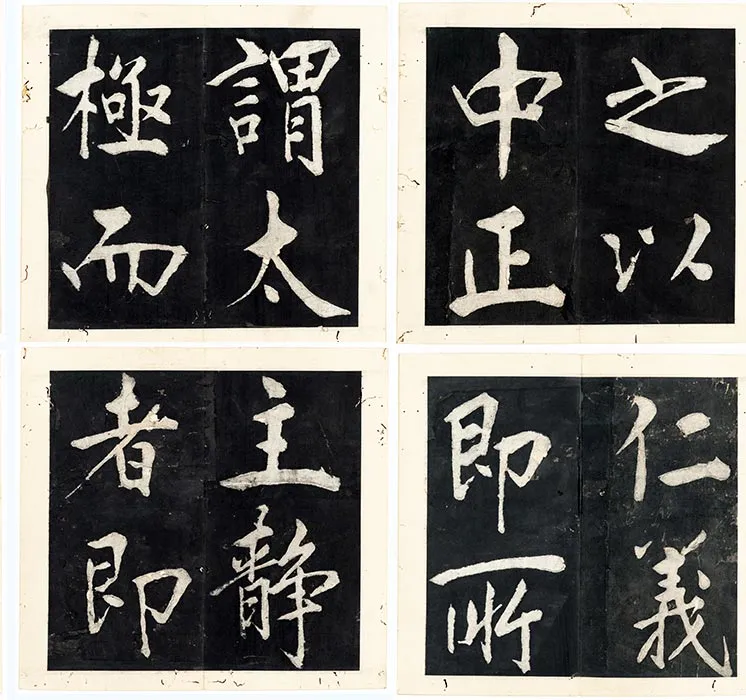 之以
中正
仁義
即所
謂太
極而
主靜
者即